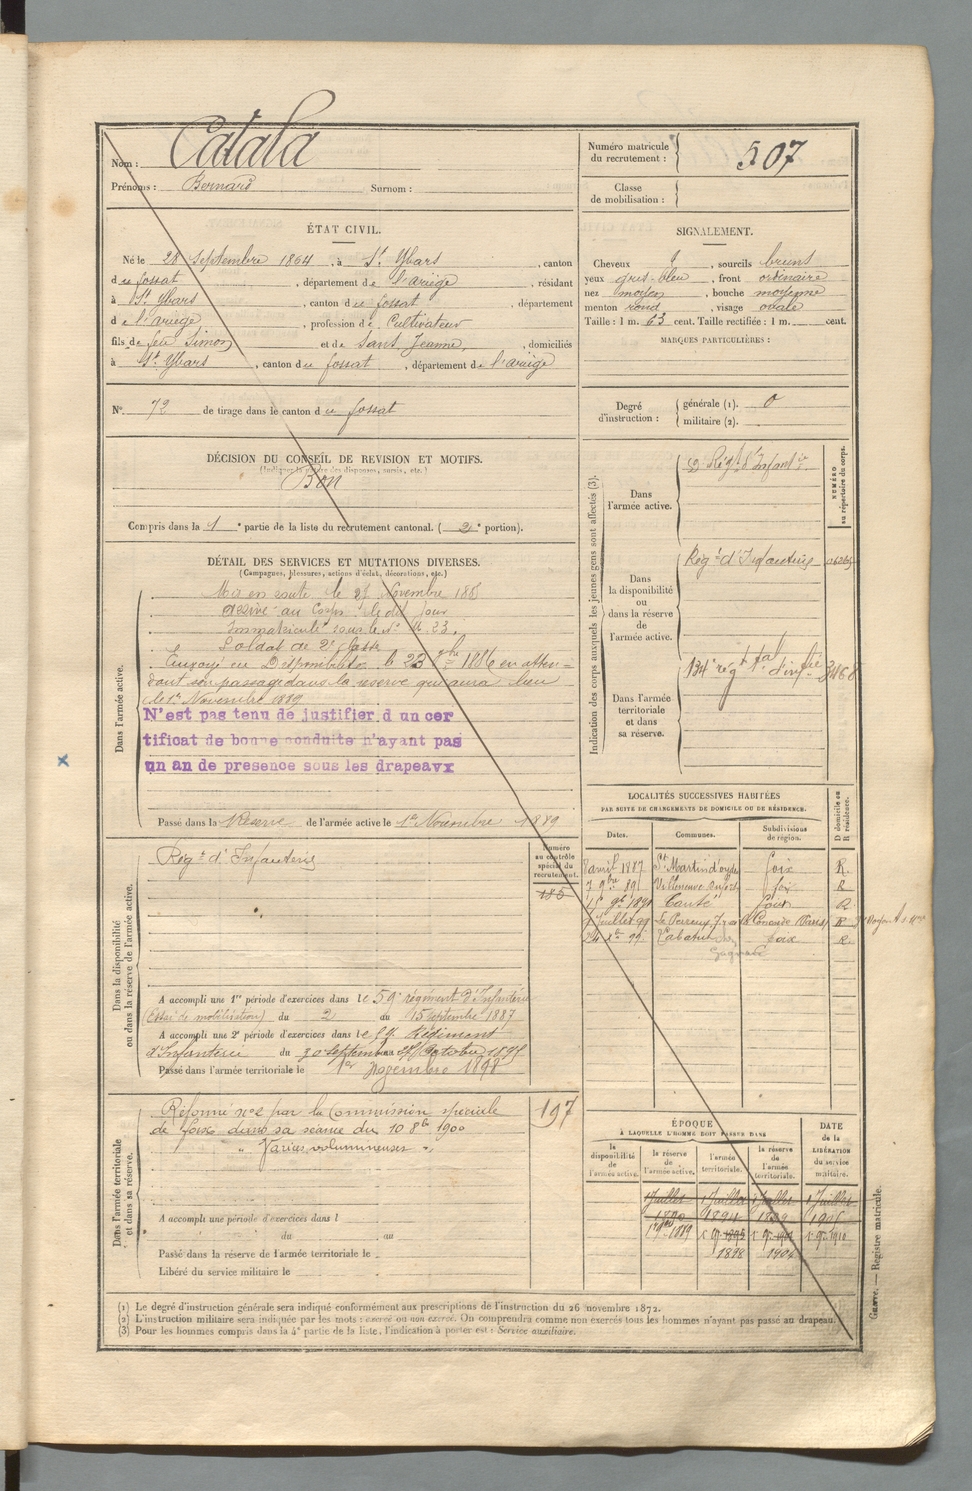 Nom : Catala
Prénoms : Bernard Surnom :
Numéro matricule du recrutement : 507
Classe de mobilisation :
ÉTAT CIVIL.
Né le 28 Septembre 1864, à St Ybars, canton
du fossat, département de l'ariège, résidant
à St Ybars, canton du fossat, département
de l'ariège, profession de Cultivateur
fils de feu Simon et de Sans Jeanne, domiciliés
à St Ybars, canton du fossat, département de l'ariège
N° 72 de tirage dans le canton du fossat
SIGNALEMENT.
Cheveux , sourcils bruns
yeux gris-bleu, front ordinaire
nez moyen, bouche moyenne
menton rond, visage ovale
Taille : 1 m. 63 cent. Taille rectifiée : 1 m. cent.
MARQUES PARTICULIÈRES :
Degré d'instruction : générale (1). 0
militaire (2).
DÉCISION DU CONSEIL DE REVISION ET MOTIFS.
Bon
Compris dans la 1e partie de la liste du recrutement cantonal. (2e portion).
DÉTAIL DES SERVICES ET MUTATIONS DIVERSES.
(Campagnes, blessures, actions d'éclat, décorations, etc.)
Dans l'armée active.
Mis en route le Novembre 188
arrivé au Corps le dit jour
Immatriculé sous le N°
Soldat de 2e classe
Envoyé en Disponibilité le 23 1886 en atten-
dant son passage dans la réserve qui aura lieu
le 1er Novembre 1889
N'est pas tenu de justifier d un cer
tificat de bonne conduite n'ayant pas
un an de presence sous les drapeavx
Passé dans la Réserve de l'armée active le 1er Novembre 1889
Indication des corps auxquels les jeunes gens sont affectés (3).
NUMÉRO au répertoire du corps.
Dans l'armée active.
Régt d'Infantie
Dans la disponibilité ou dans la réserve de l'armée active.
Régt d'Infanterie
Dans l'armée territoriale et dans sa réserve.
134e régt tal d'infie
LOCALITÉS SUCCESSIVES HABITÉES
PAR SUITE DE CHANGEMENTS DE DOMICILE OU DE RÉSIDENCE.
Dates. Communes. Subdivisions de région. D domicile ou R résidence.
8 avril 1887 St Martin d'oydes foix R.
7 9bre 89 Villeneuve foix R
9bre 1891 Canté foix R
Juillet 99 Le Perreux R
99 foix R.
Dans la disponibilité ou dans la réserve de l'armée active.
Numéro au contrôle spécial du recrutement.
Régt d'Infanterie
A accompli une 1re période d'exercices dans le 59e régiment d'Infanterie
(Essai de mobilisation) du 2 au 15 septembre 1887
A accompli une 2e période d'exercices dans le 59e Régiment
d'Infanterie du
Passé dans l'armée territoriale le 1er Novembre 1898
Dans l'armée territoriale et dans sa réserve.
197
Réformé n°2 par la Commission spéciale
de foix dans sa séance du 10 8bre 1900
" Varices volumineuses "
A accompli une période d'exercices dans l
du au
Passé dans la réserve de l'armée territoriale le
Libéré du service militaire le
ÉPOQUE
À LAQUELLE L'HOMME DOIT PASSER DANS
la disponibilité de l'armée active. la réserve de l'armée active. l'armée territoriale. la réserve de l'armée territoriale.
DATE de la LIBÉRATION du service militaire.
1 Juillet 1 Juillet 1 Juillet 1 Juillet
1890
1889 1910
1898 1904
(1) Le degré d'instruction générale sera indiqué conformément aux prescriptions de l'instruction du 26 novembre 1872.
(2) L'instruction militaire sera indiquée par les mots : exercé ou non exercé. On comprendra comme non exercés tous les hommes n'ayant pas passé au drapeau.
(3) Pour les hommes compris dans la 4e partie de la liste, l'indication à porter est : Service auxiliaire.
Guerre. — Registre matricule.